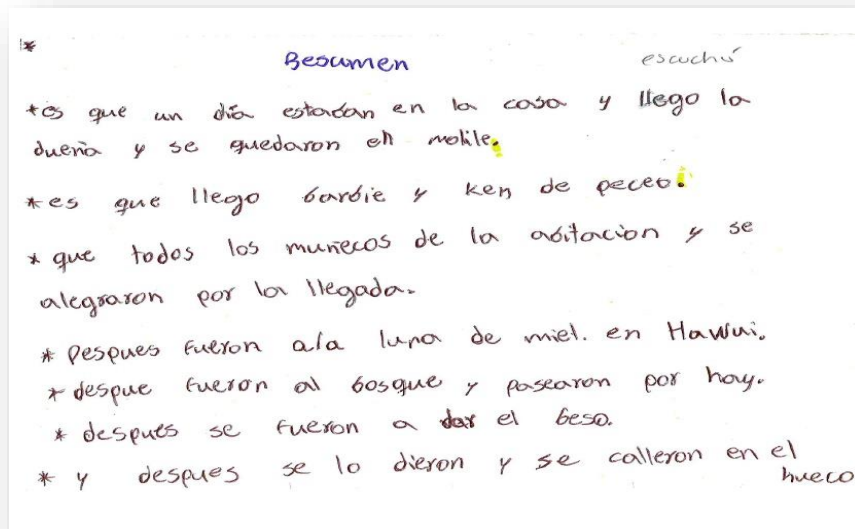 *
Besumen escuchó
*es que un día estadan en la casa y llego la
dueña y se quedaron en
*es que llego barbie y ken de peceo.
* que todos los muñecos de la abitacion y se
alegraron por la llegada.
* Pespues fueron ala luna de miel. en Hawui.
* despue fueron al bosque y pasearon por hay.
* despues se fueron a dar el beso.
* y despues se lo dieron y se calleron en el
hueco